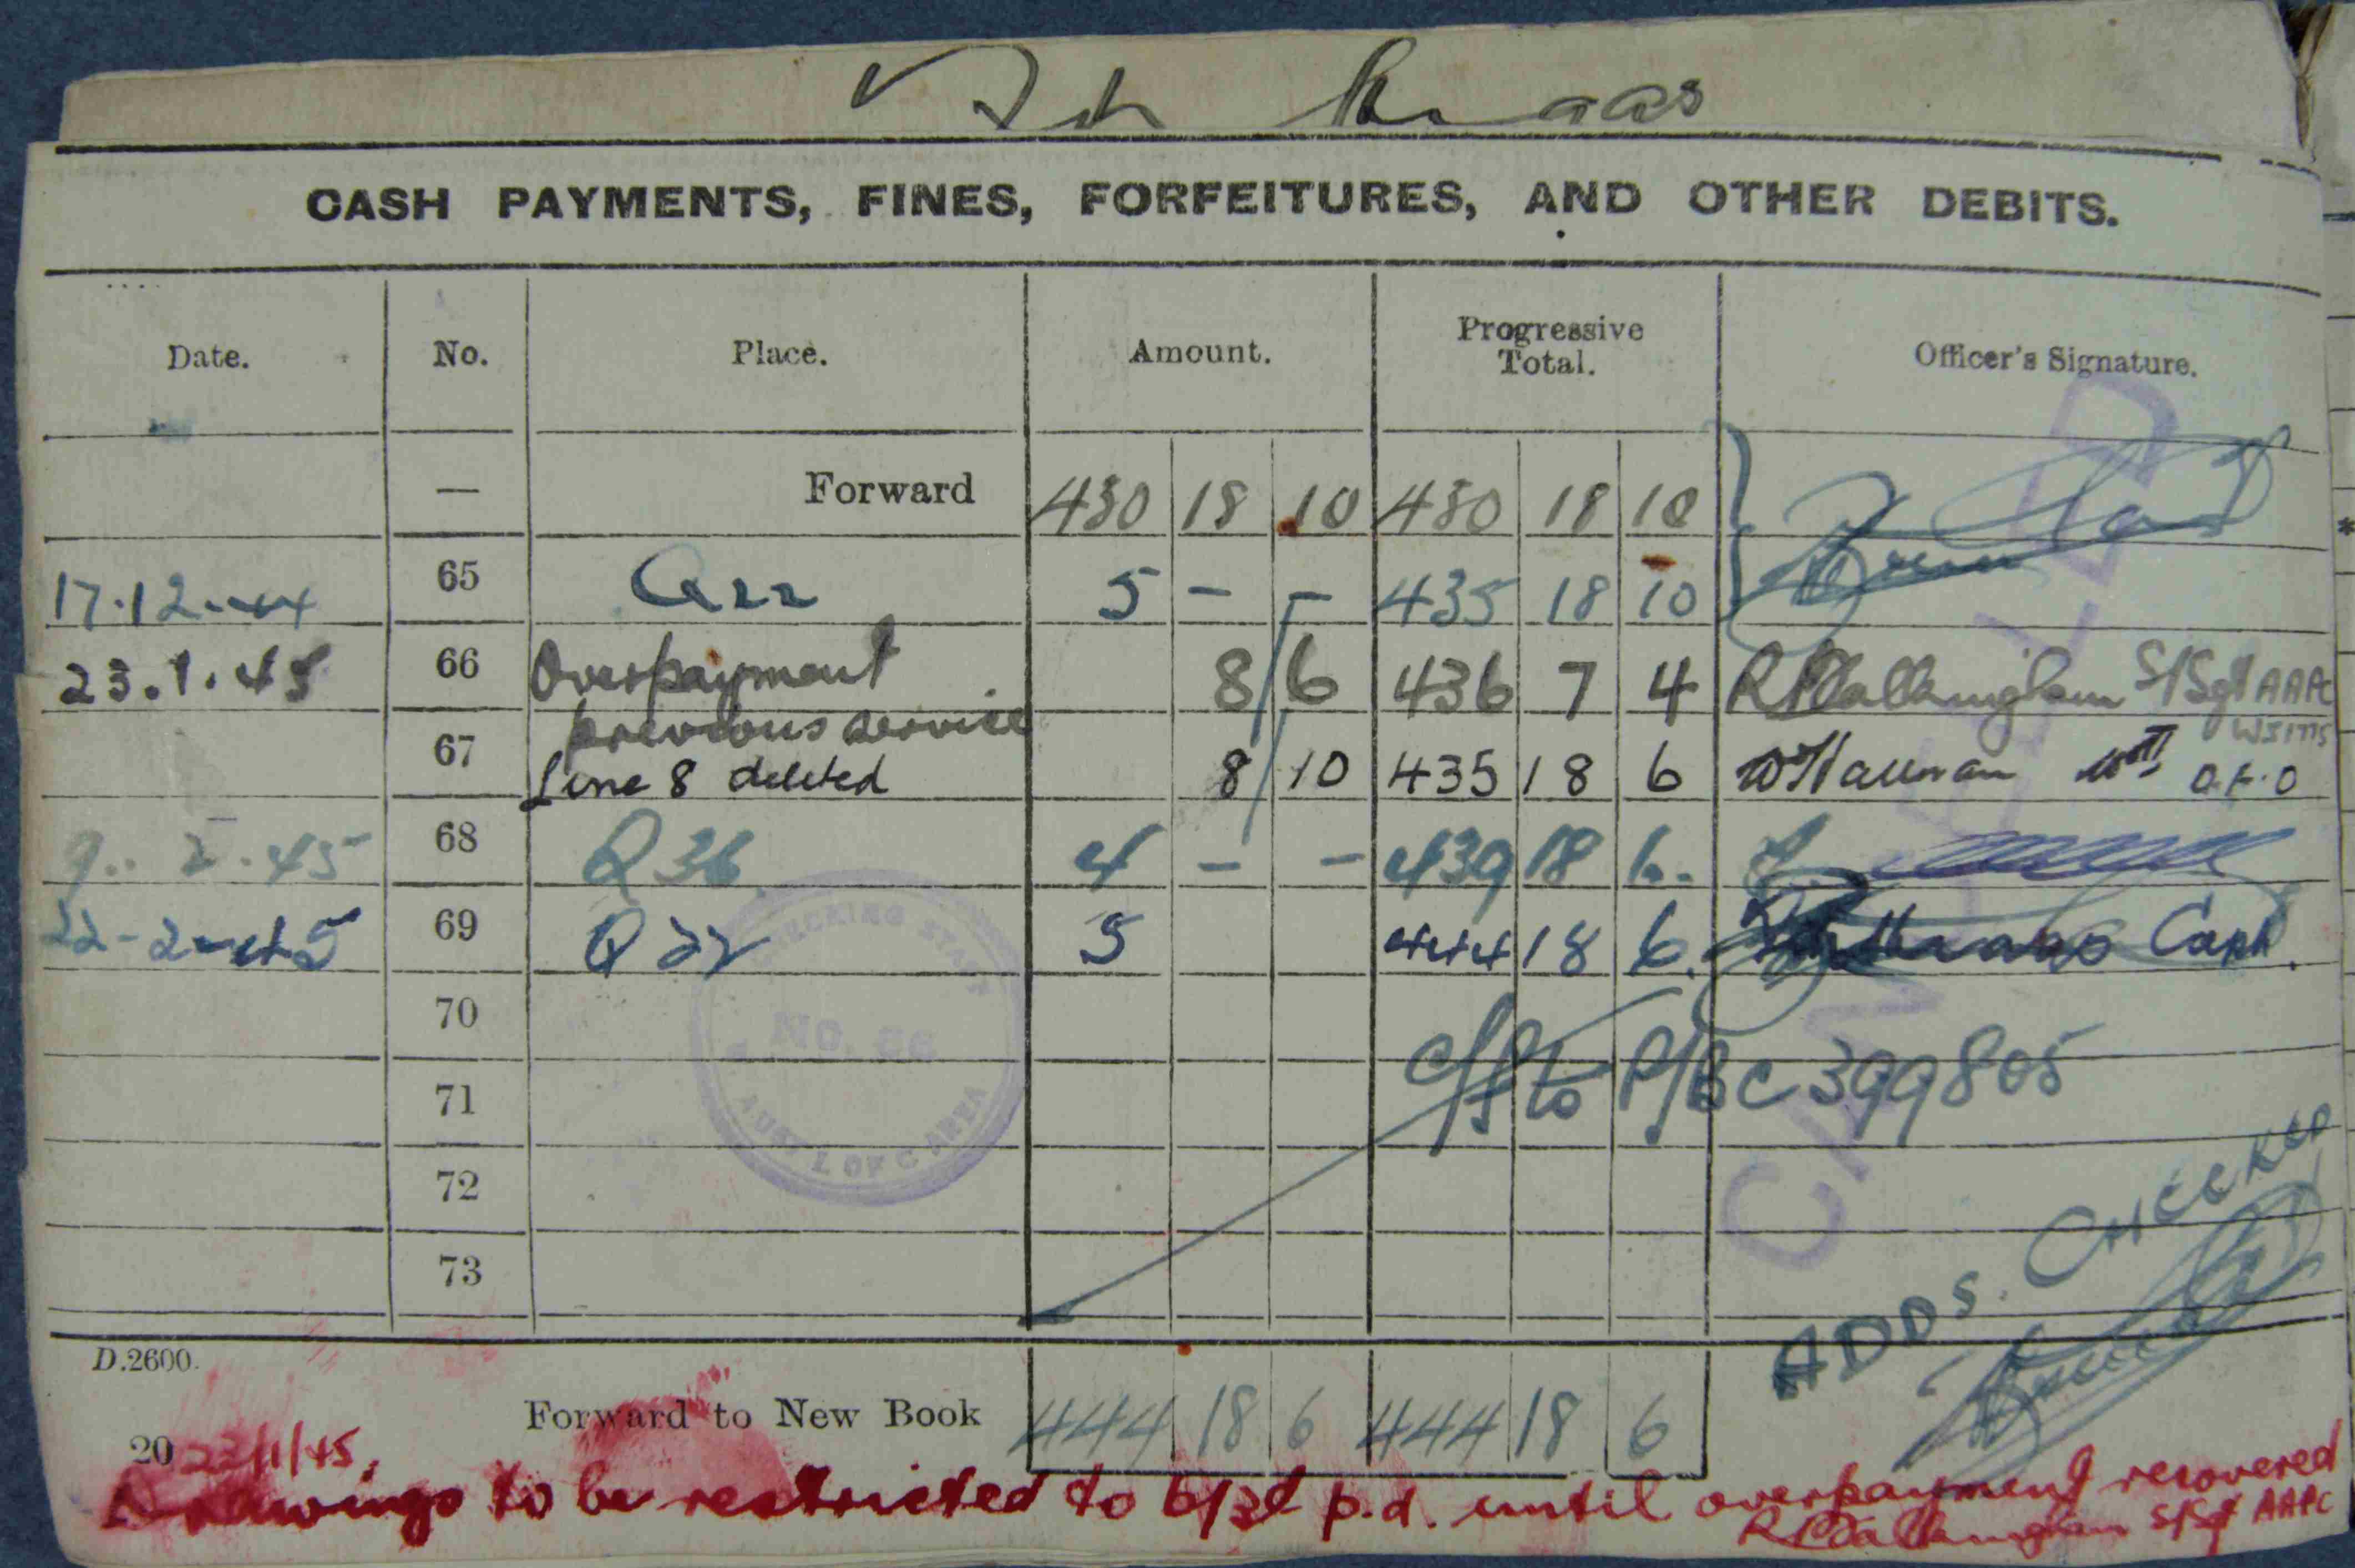 CASH PAYMENTS, FINES, FORFEITURES, AND OTHER DEBITS.
Date. No. Place. Amount. Progressive Total. Officer's Signature.
— Forward 430 18 10 430 18 10
17.12.44 65 Q22 5 - - 435 18 10
23.1.45 66 Overpayment 8/6 436 7 4 S/Sgt AAPC
previous service
67 Line 8 deleted 8/10 435 18 6 O.F.O
9. 2.45 68 Q36 4 - - 439 18 6.
22-2-45 69 Q22 5 444 18 6. Capt.
70
c/f to P/B C399805
71
72
73
CHECKING STAFF
NO. 66
AUST L OF C AREA
CANCELLED
ADDS. CHECKED
D.2600.
Forward to New Book 444 18 6 444 18 6
20 23/1/45.
Drawings to be restricted to 6/3d p.d. until overpayment recovered
S/Sgt AAPC